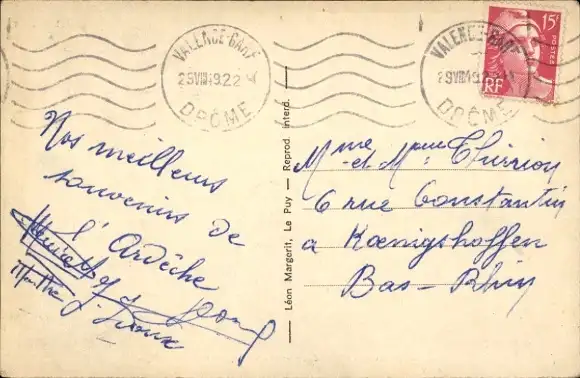 VALENCE-GARE
25 VIII 49.22 H
DRÔME
VALENCE-GARE
29 VIII 49.22 H
DRÔME
15F
POSTES
RF
Nos meilleurs
souvenirs de
l'Ardèche
Marthe
Léon Margerit, Le Puy — Reprod. interd.
Mme et Mr Thirion
6 rue Constantin
a Kœnigshoffen
Bas-Rhin